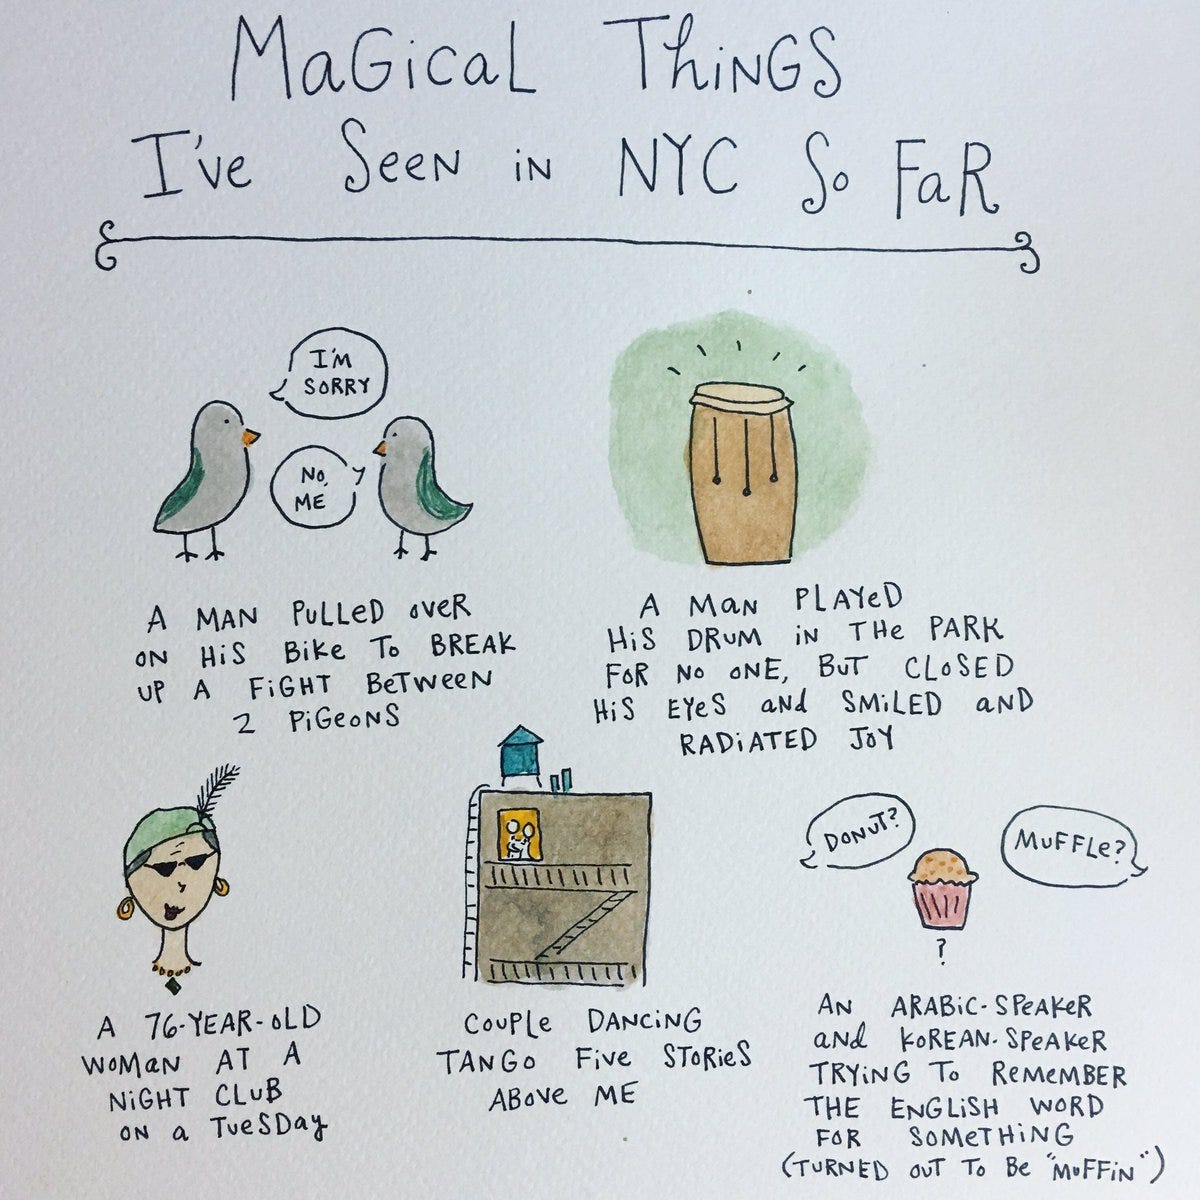 MaGical ThiNGS
I've SeeN iN NYC So FaR
I'M
SORRY
No,
ME
A MAN PULLeD oveR
ON HiS BiKe To BREAK
UP A FiGHT BeTweeN
2 PiGeoNS
A MaN PLAYeD
HiS DRUM iN THe PARK
FoR No oNE, BuT CLoSED
HiS EYeS aNd SMiLED aND
RADiATED JoY
A 76-YEAR-oLD
WoMAN AT A
NiGHT CLuB
ON a TueSDay
CouPLe DANCiNG
TANGo Five SToRieS
ABove ME
DoNuT?
MuFFLe?
?
AN ARABiC-SPeaKeR
aNd KoREAN-SPeaKeR
TRYiNG To ReMeMBER
THE ENGLiSH WoRD
FoR SoMeTHiNG
(TuRNED ouT To Be "MuFFiN")